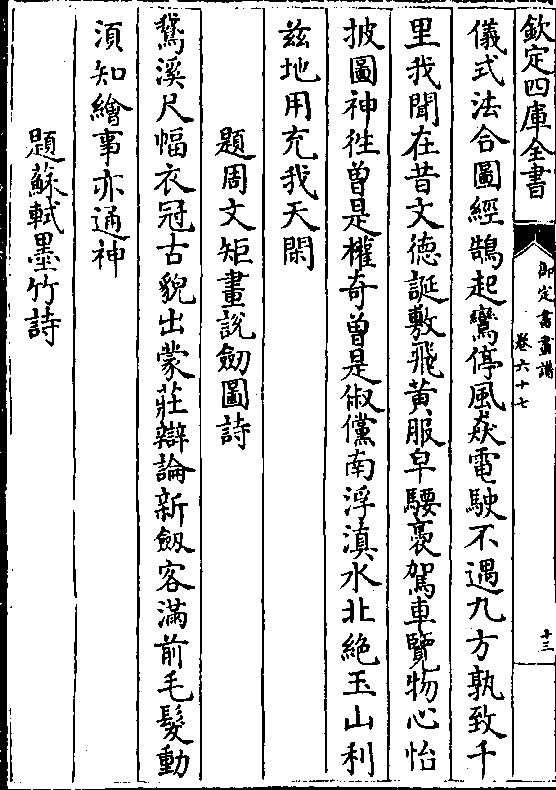 欽定四庫全書
御定書畫譜
卷六十七
十三
儀式法合圖經鵠起鸞停風猋電駛不遇九方孰致千
里我聞在昔文德誕敷飛黃服皁騕褭駕車覽物心怡
披圖神徃曾是權奇曾是俶儻南浮滇水北絶玉山利
兹地用充我天閑
題周文矩畫說劎圖詩
鵞溪尺幅衣冠古貌出蒙莊辯論新劔客滿前毛髮動
湏知繪事亦通神
題蘇軾墨竹詩